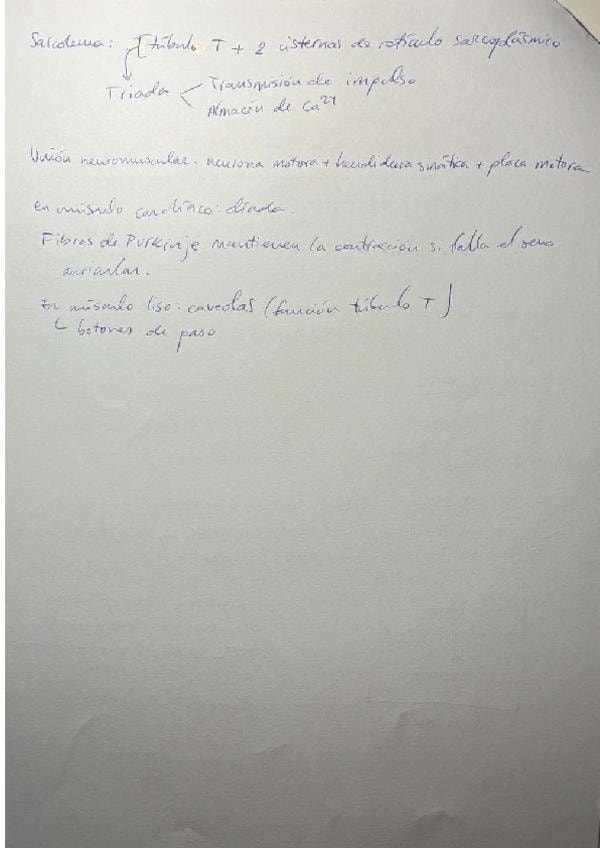 Sarcolema: [túbulo T + 2 cisternas de retículo sarcoplásmico
Triada
Transmisión de impulso
Almacén de Ca²⁺
Unión neuromuscular. neurona motora + hendidura sinática + placa motora
En músculo cardíaco: diada.
Fibras de Purkinje mantienen la contracción si falla el seno
auricular.
En músculo liso: caveolas (función túbulo T)
botones de paso